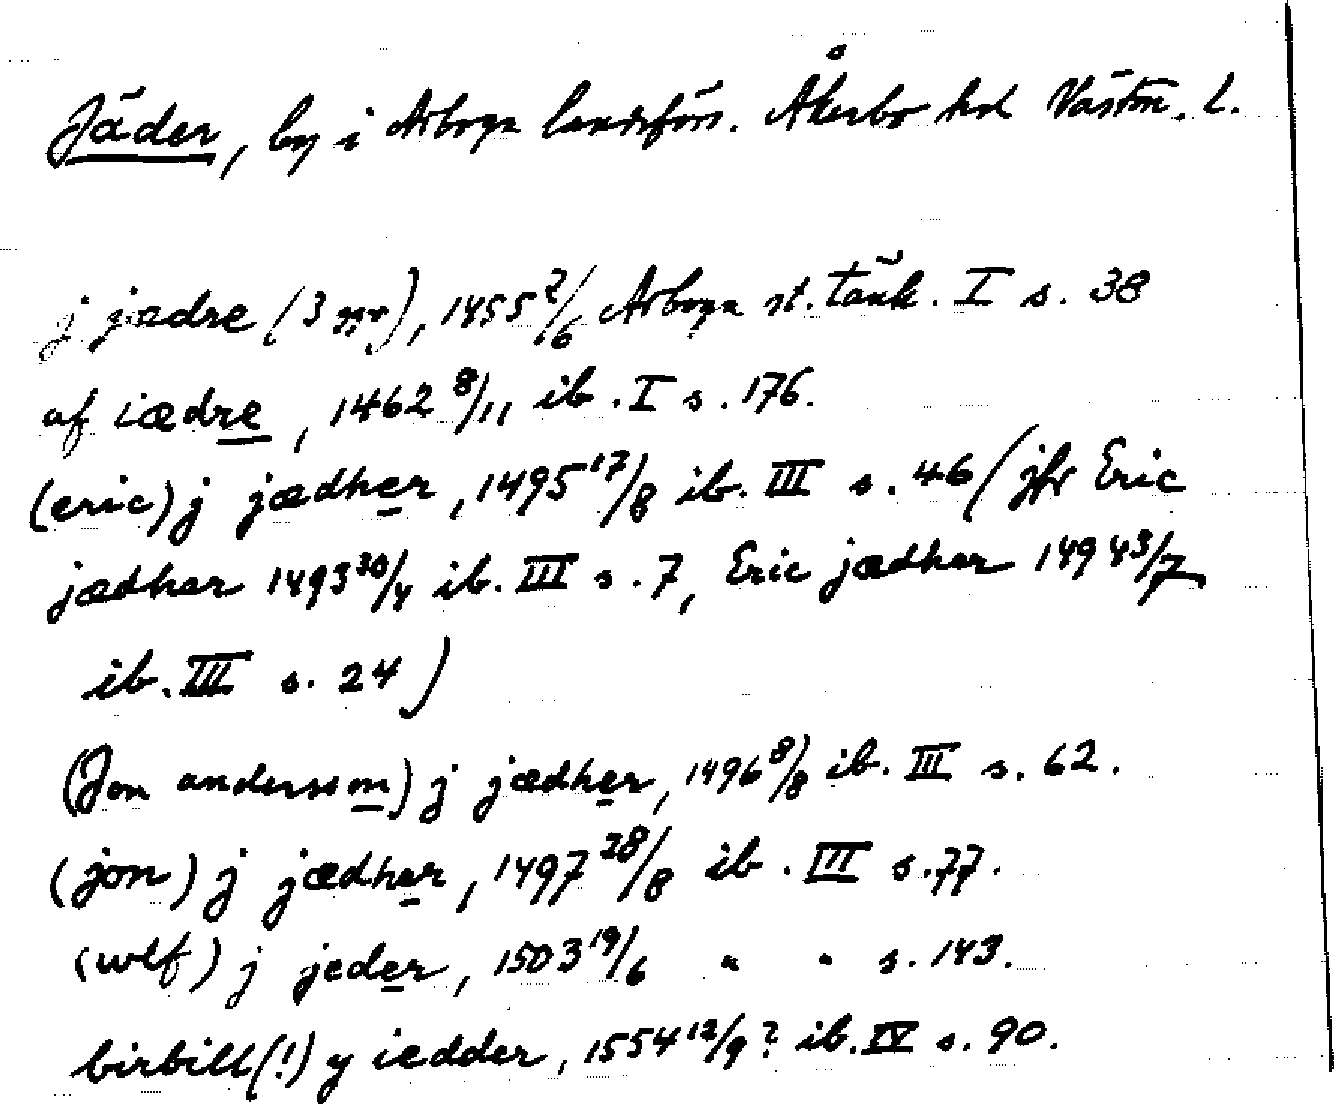 Jäder, by i Arboga landsförs. Åkerbo hd Västm. L.
j jædre (3 ggr), 1455 2/6 Arboga st. tänk. I s. 38
af iædre, 1462 8/11 ib. I s. 176.
(eric) j jædher, 1495 17/8 ib. III s. 46 (jfr Eric
jædhar 1493 30/4 ib. III s. 7, Eric jædhar 1494 3/7
ib. III s. 24)
(Jon andersson) j jædher, 1496 8/8 ib. III s. 62.
(jon) j jædher, 1497 28/8 ib. III s. 77.
(wlf) j jeder, 1503 19/6 " " s. 143.
birbill(!) y iedder, 1554 12/9? ib. IV s. 90.